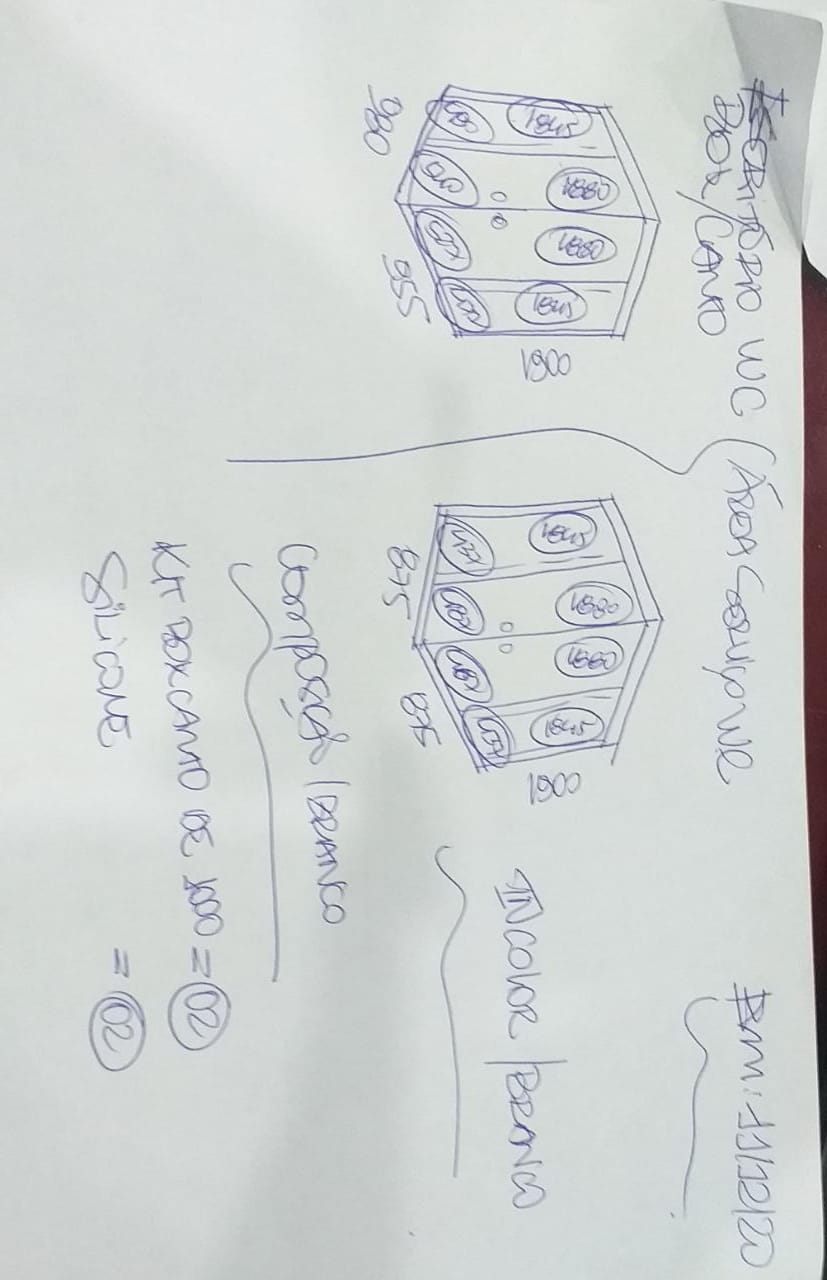 ESCRITÓRIO WC (ÁREA SERVIÇO WC
BOX/CANTO
Em: 11/12/20
1845 1880 1880 1845
1900
980 955
1845 1880 1880 1845
1900
875 875
INCOLOR/BRANCO
COMPOSIÇÃO/BRANCO
KIT BOX CANTO DE 1000 = 02
SILICONE = 02